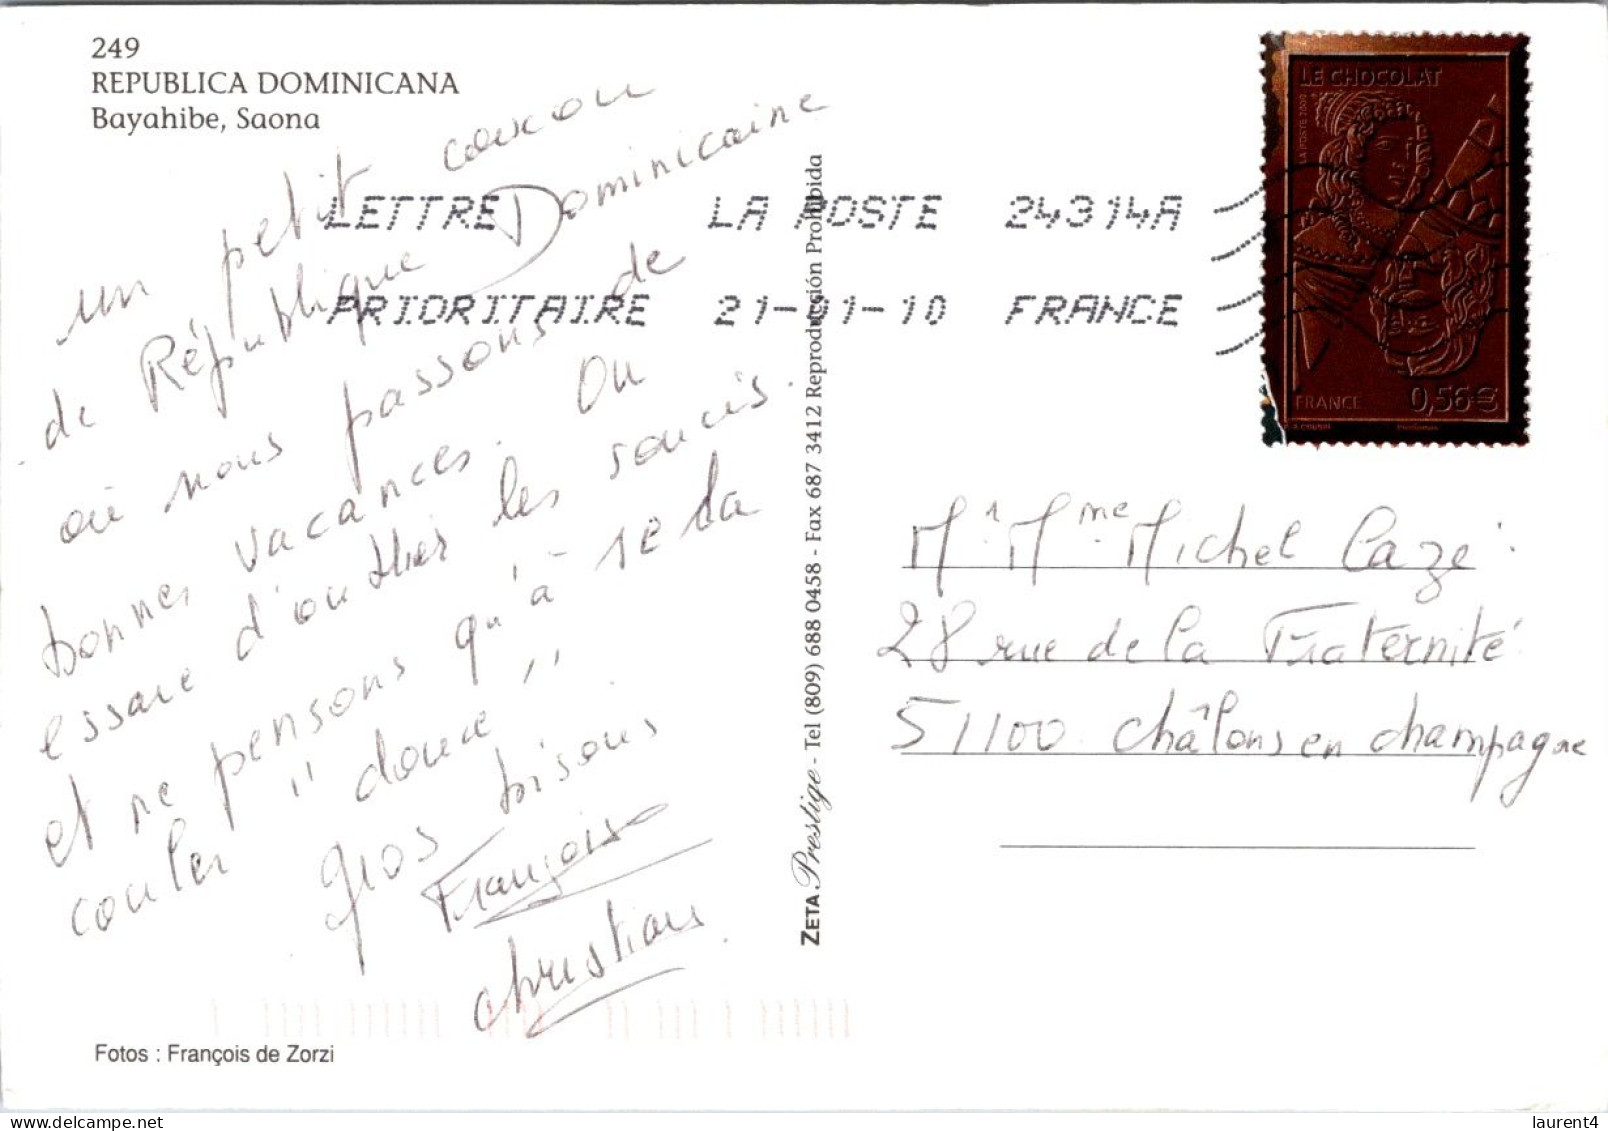 249
REPUBLICA DOMINICANA
Bayahibe, Saona
un petit coucou
de République Dominicaine
où nous passons de
bonnes vacances. On
essaie d'oublier les soucis.
et ne pensons qu'à se la
couler "douce"
gros bisous
Françoise
Christian
Fotos : François de Zorzi
LETTRE LA POSTE 24314A
PRIORITAIRE 21-01-10 FRANCE
ZETA Prestige - Tel (809) 688 0458 - Fax 687 3412 Reproducción Prohibida
LE CHOCOLAT
LA POSTE 2009
FRANCE 0,56€
Mr Mme Michel Caze
28 rue de la Fraternité
51100 Châlons en champagne
laurent4